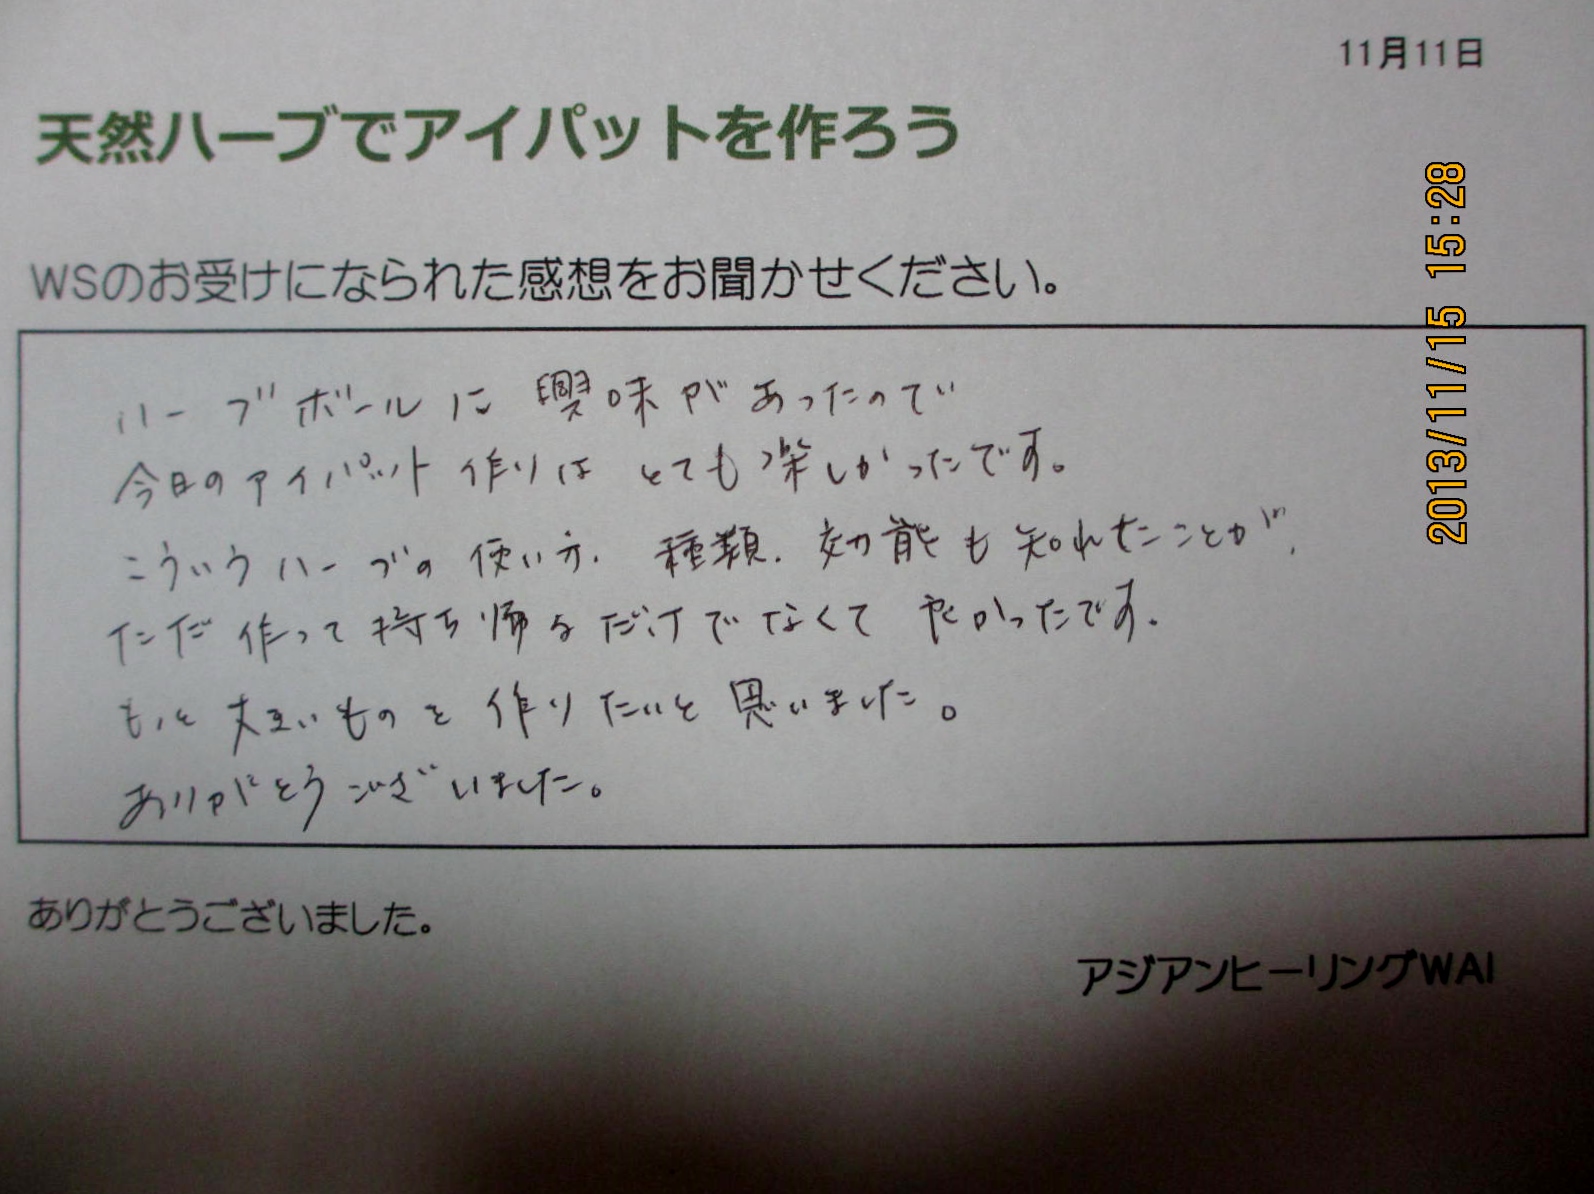 11月11日
天然ハーブでアイパットを作ろう
WSのお受けになられた感想をお聞かせください。
ハーブボールに興味があったので
今日のアイパット作りはとても楽しかったです。
こういうハーブの使い方、種類、効能も知れたことが、
ただ作って持ち帰るだけでなくて良かったです。
もっと大きいものを作りたいと思いました。
ありがとうございました。
ありがとうございました。
アジアンヒーリングWAI
2013/11/15 15:28